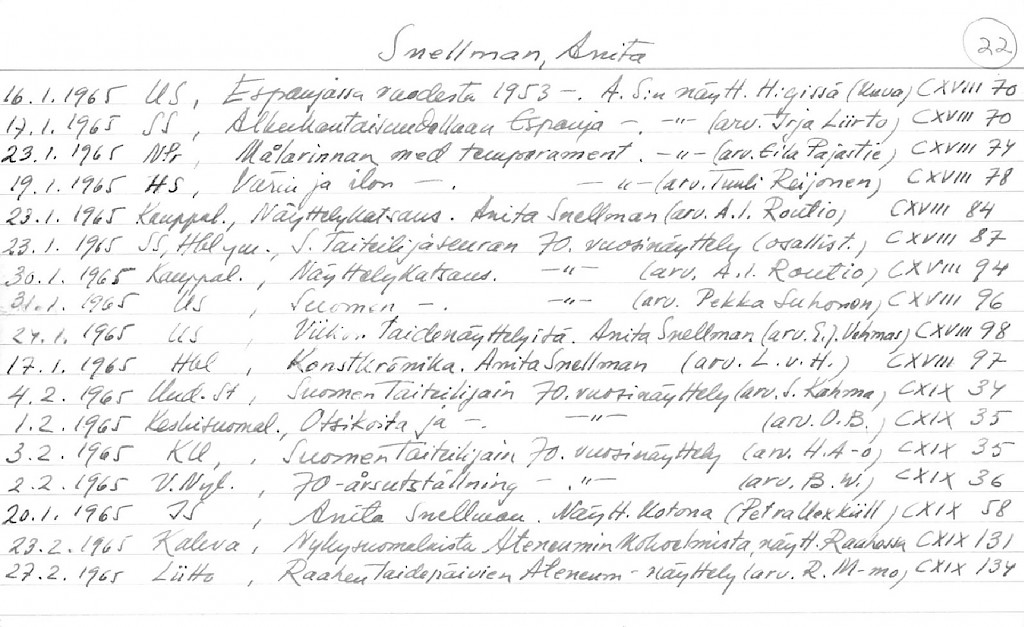 Snellman, Anita
22
16.1.1965 US, Espanjassa vuodesta 1953 -. A. S:n näytt. H:gissä (kuva) CXVIII 70
17.1.1965 SS, Espanja -. -"- (arv. Irja Liirto) CXVIII 70
23.1.1965 NPr, Målarinnan med temperament. -"- (arv. Eila Pajastie) CXVIII 74
19.1.1965 HS, Värin ja ilon -. -"- (arv. Tuuli Reijonen) CXVIII 78
23.1.1965 Kauppal., Näyttelykatsaus. Anita Snellman (arv. A.I. Routio) CXVIII 84
23.1.1965 SS, Hbl ym., S. Taiteilijaseuran 70. vuosinäyttely (osallist.) CXVIII 87
30.1.1965 Kauppal., Näyttelykatsaus. -"- (arv. A.I. Routio) CXVIII 94
31.1.1965 US, Suomen -. -"- (arv. Pekka Suhonen) CXVIII 96
24.1.1965 US Viikon taidenäyttelyitä. Anita Snellman (arv. E.J. Vehmas) CXVIII 98
17.1.1965 Hbl, Konstkrönika. Anita Snellman (arv. L.v.H.) CXVIII 97
4.2.1965 Uud.St, Suomen Taiteilijain 70. vuosinäyttely (arv. S. Kahma) CXIX 34
1.2.1965 Keskisuomal., Otsikoita ja -. -"- (arv. O.B.) CXIX 35
3.2.1965 KU, , Suomen Taiteilijain 70. vuosinäyttely (arv. H.A-o) CXIX 35
2.2.1965 V.Nyl., 70-årsutställning -.-"- (arv. B.W.) CXIX 36
20.1.1965 IS, Anita Snellman. Näytt. Kotona (Petra Uexküll) CXIX 58
23.2.1965 Kaleva, Nykysuomalaista Ateneumin kokoelmista, näytt. Raahessa CXIX 131
27.2.1965 Liitto, Raahen Taidepäivien Ateneum-näyttely (arv. R. M-mo) CXIX 134